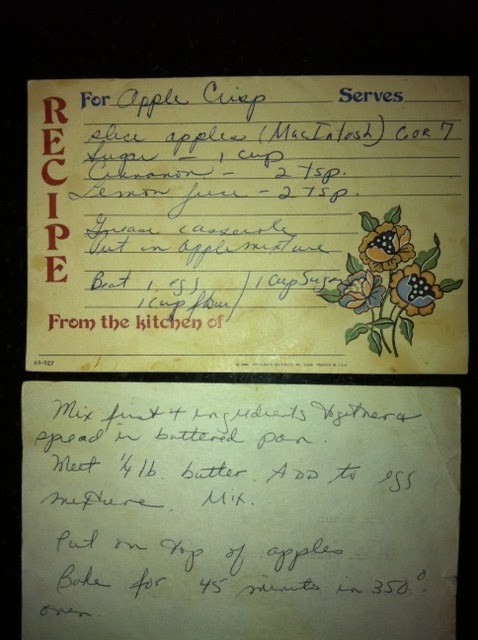 RECIPE
For Apple Crisp Serves
slice apples (MacIntosh) 6 OR 7
Sugar - 1 cup
Cinnamon - 2 tsp.
Lemon juice - 2 tsp.
Grease casserole
Put in apple mixture
Beat 1 egg / 1 cup sugar
1 cup flour /
From the kitchen of
PRINTED IN U.S.A.
Mix first 4 ingredients together &
spread in buttered pan.
Melt 1/4 lb. butter. ADD to egg
mixture. Mix.
Put on top of apples
Bake for 45 minutes in 350°
oven